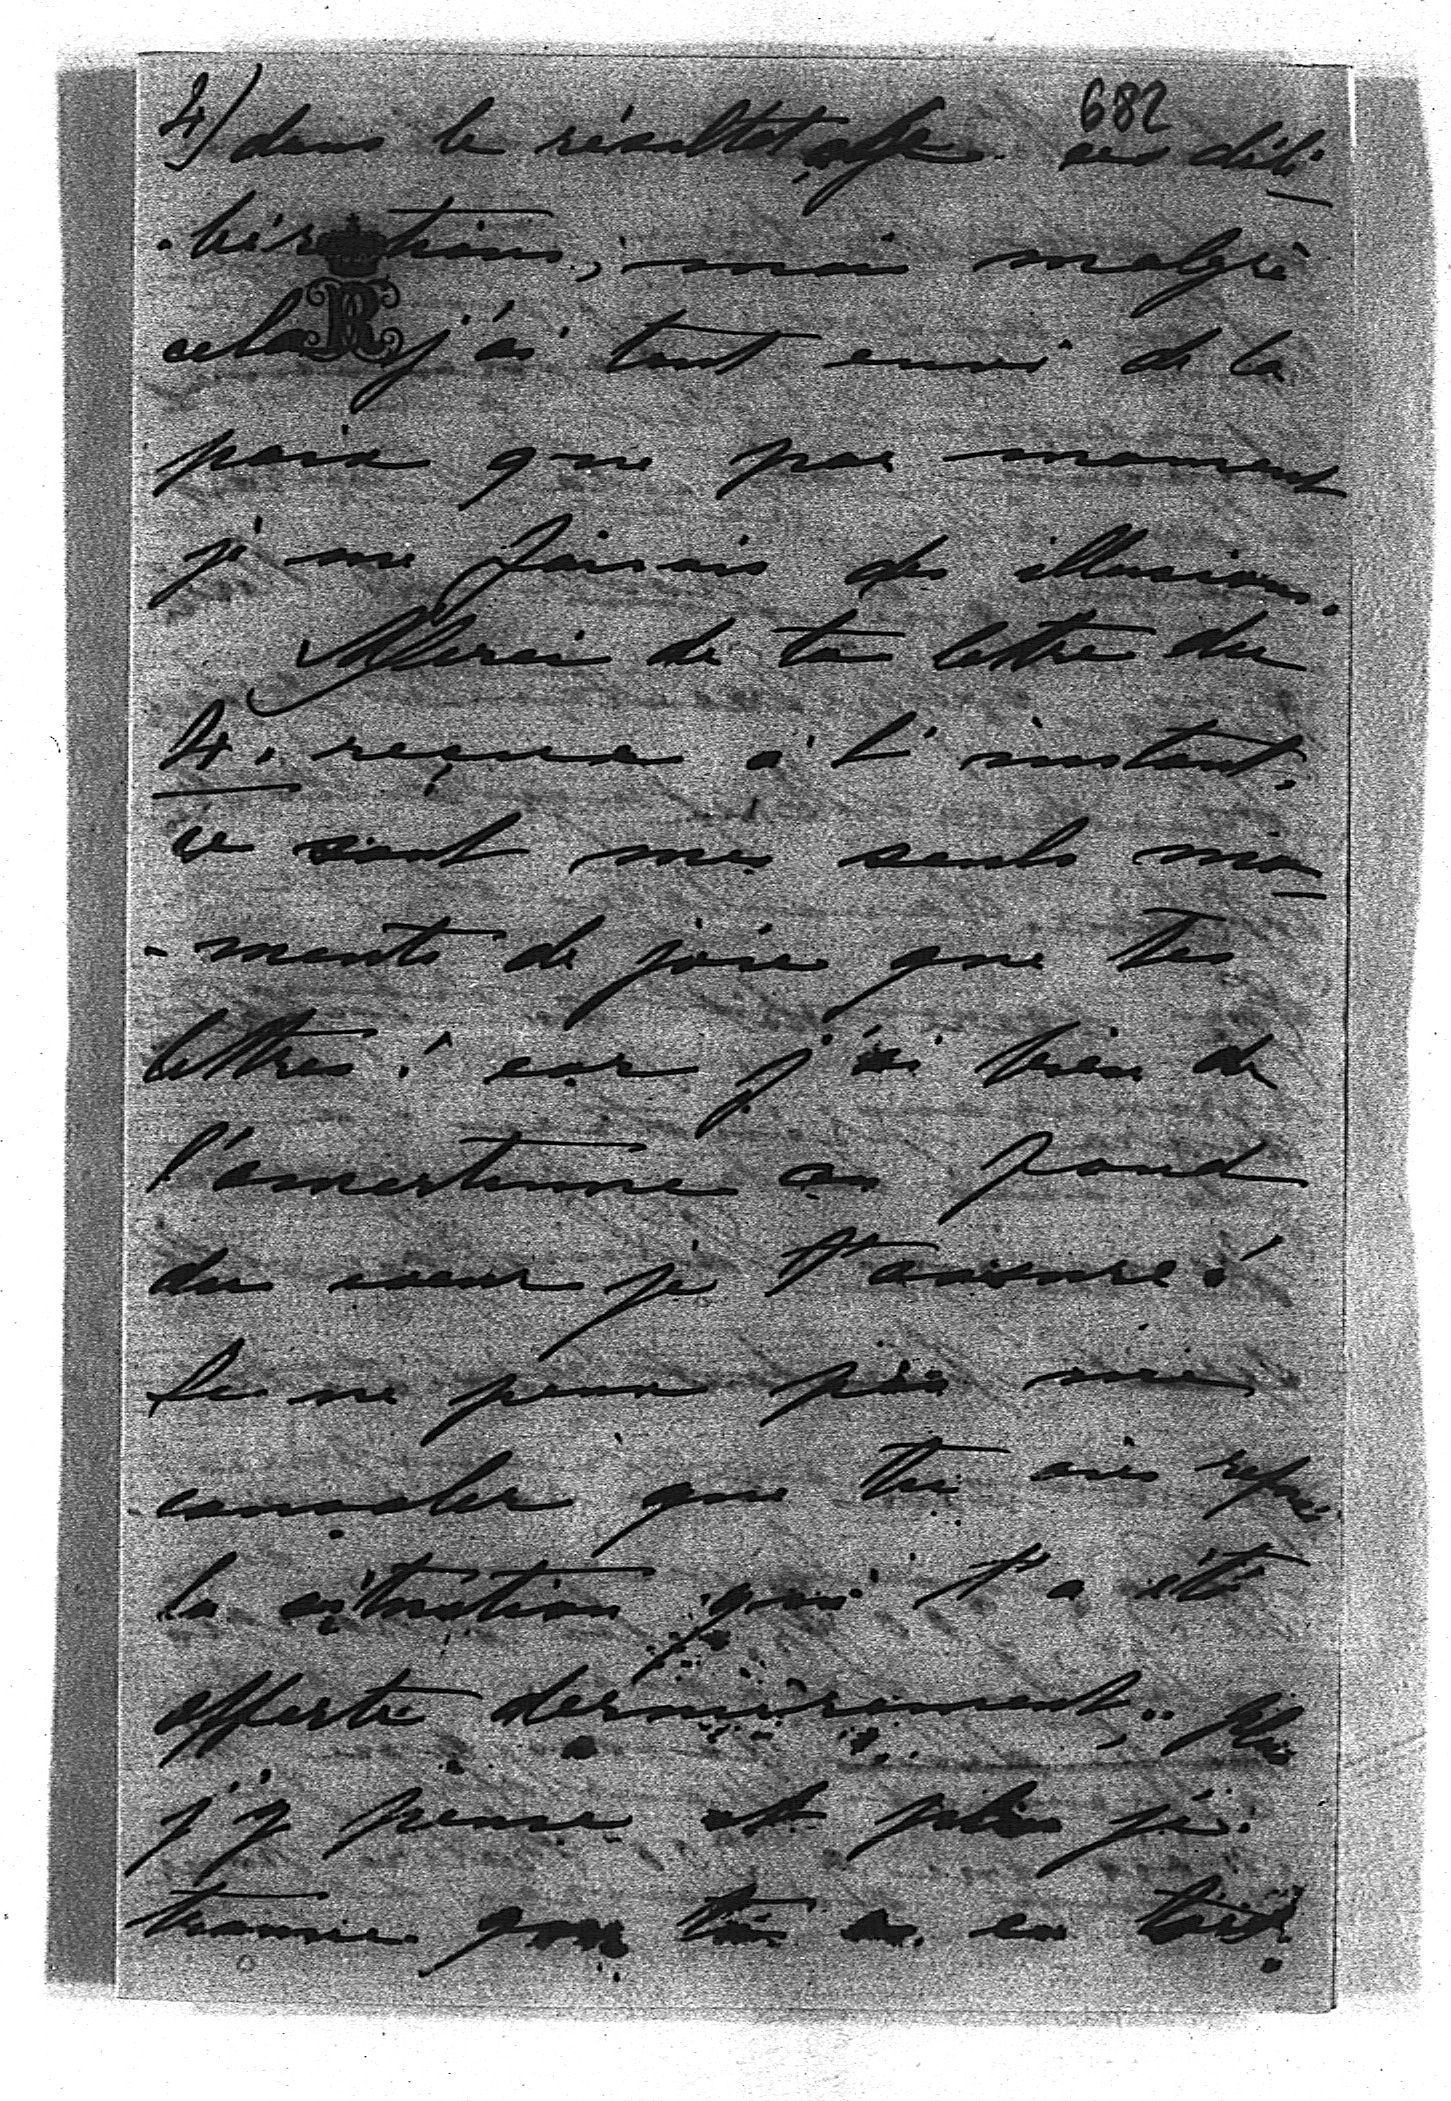 682
2) dans le résultat de ses déli-
-bérations; mais malgré
cela j'ai tant envie de la
paix que par moment
je me faisais des illusions.
Merci de ta lettre du
4. reçue à l'instant,
ce sont mes seuls mo-
-ments de joie que tes
lettres! car j'ai bien de
l'amertume au fond
du coeur je t'assure!
Je ne peux pas me
consoler que tu aies refusé
la situation qui t'a été
offerte dernièrement, plus
j'y pense et plus je
trouve que tu as eu tort.